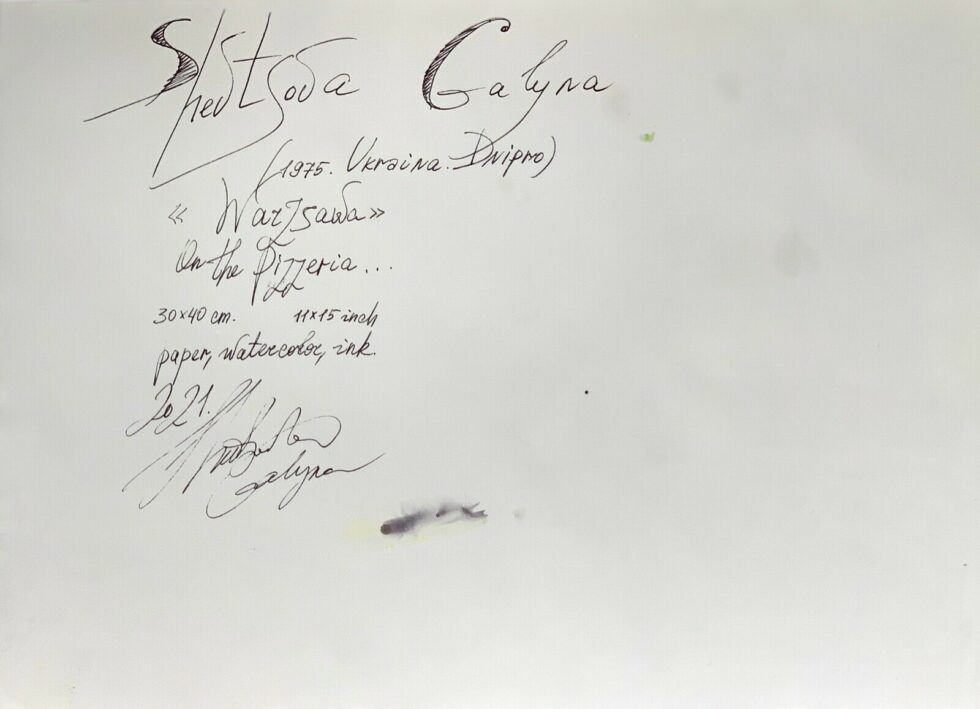 Shevtsova Galyna
(1975. Ukraina. Dnipro)
« Warzsawa»
On the Pizzeria...
30×40 cm. 11×15 inch
paper, watercolor, ink.
2021.
Galyna